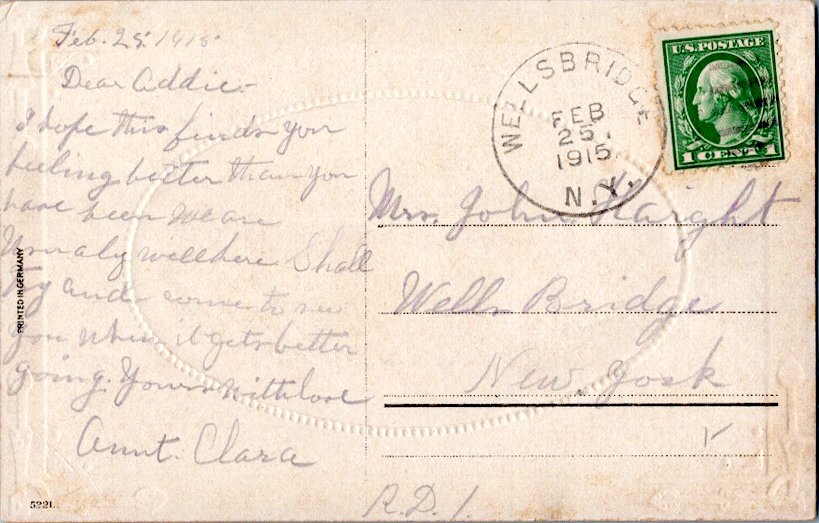 Feb. 25. 1915
Dear Addie.-
I hope this finds you
feeling better than you
have been We are
Usualy well here Shall
try and come to see
you when it gets better
going. Yours with love
Aunt. Clara
PRINTED IN GERMANY
5221.
WELLSBRIDGE
FEB
25.
1915
N.Y.
U.S. POSTAGE
1 CENT 1
Mrs. John Haight
Wells Bridge
New. York
R.D. 1.